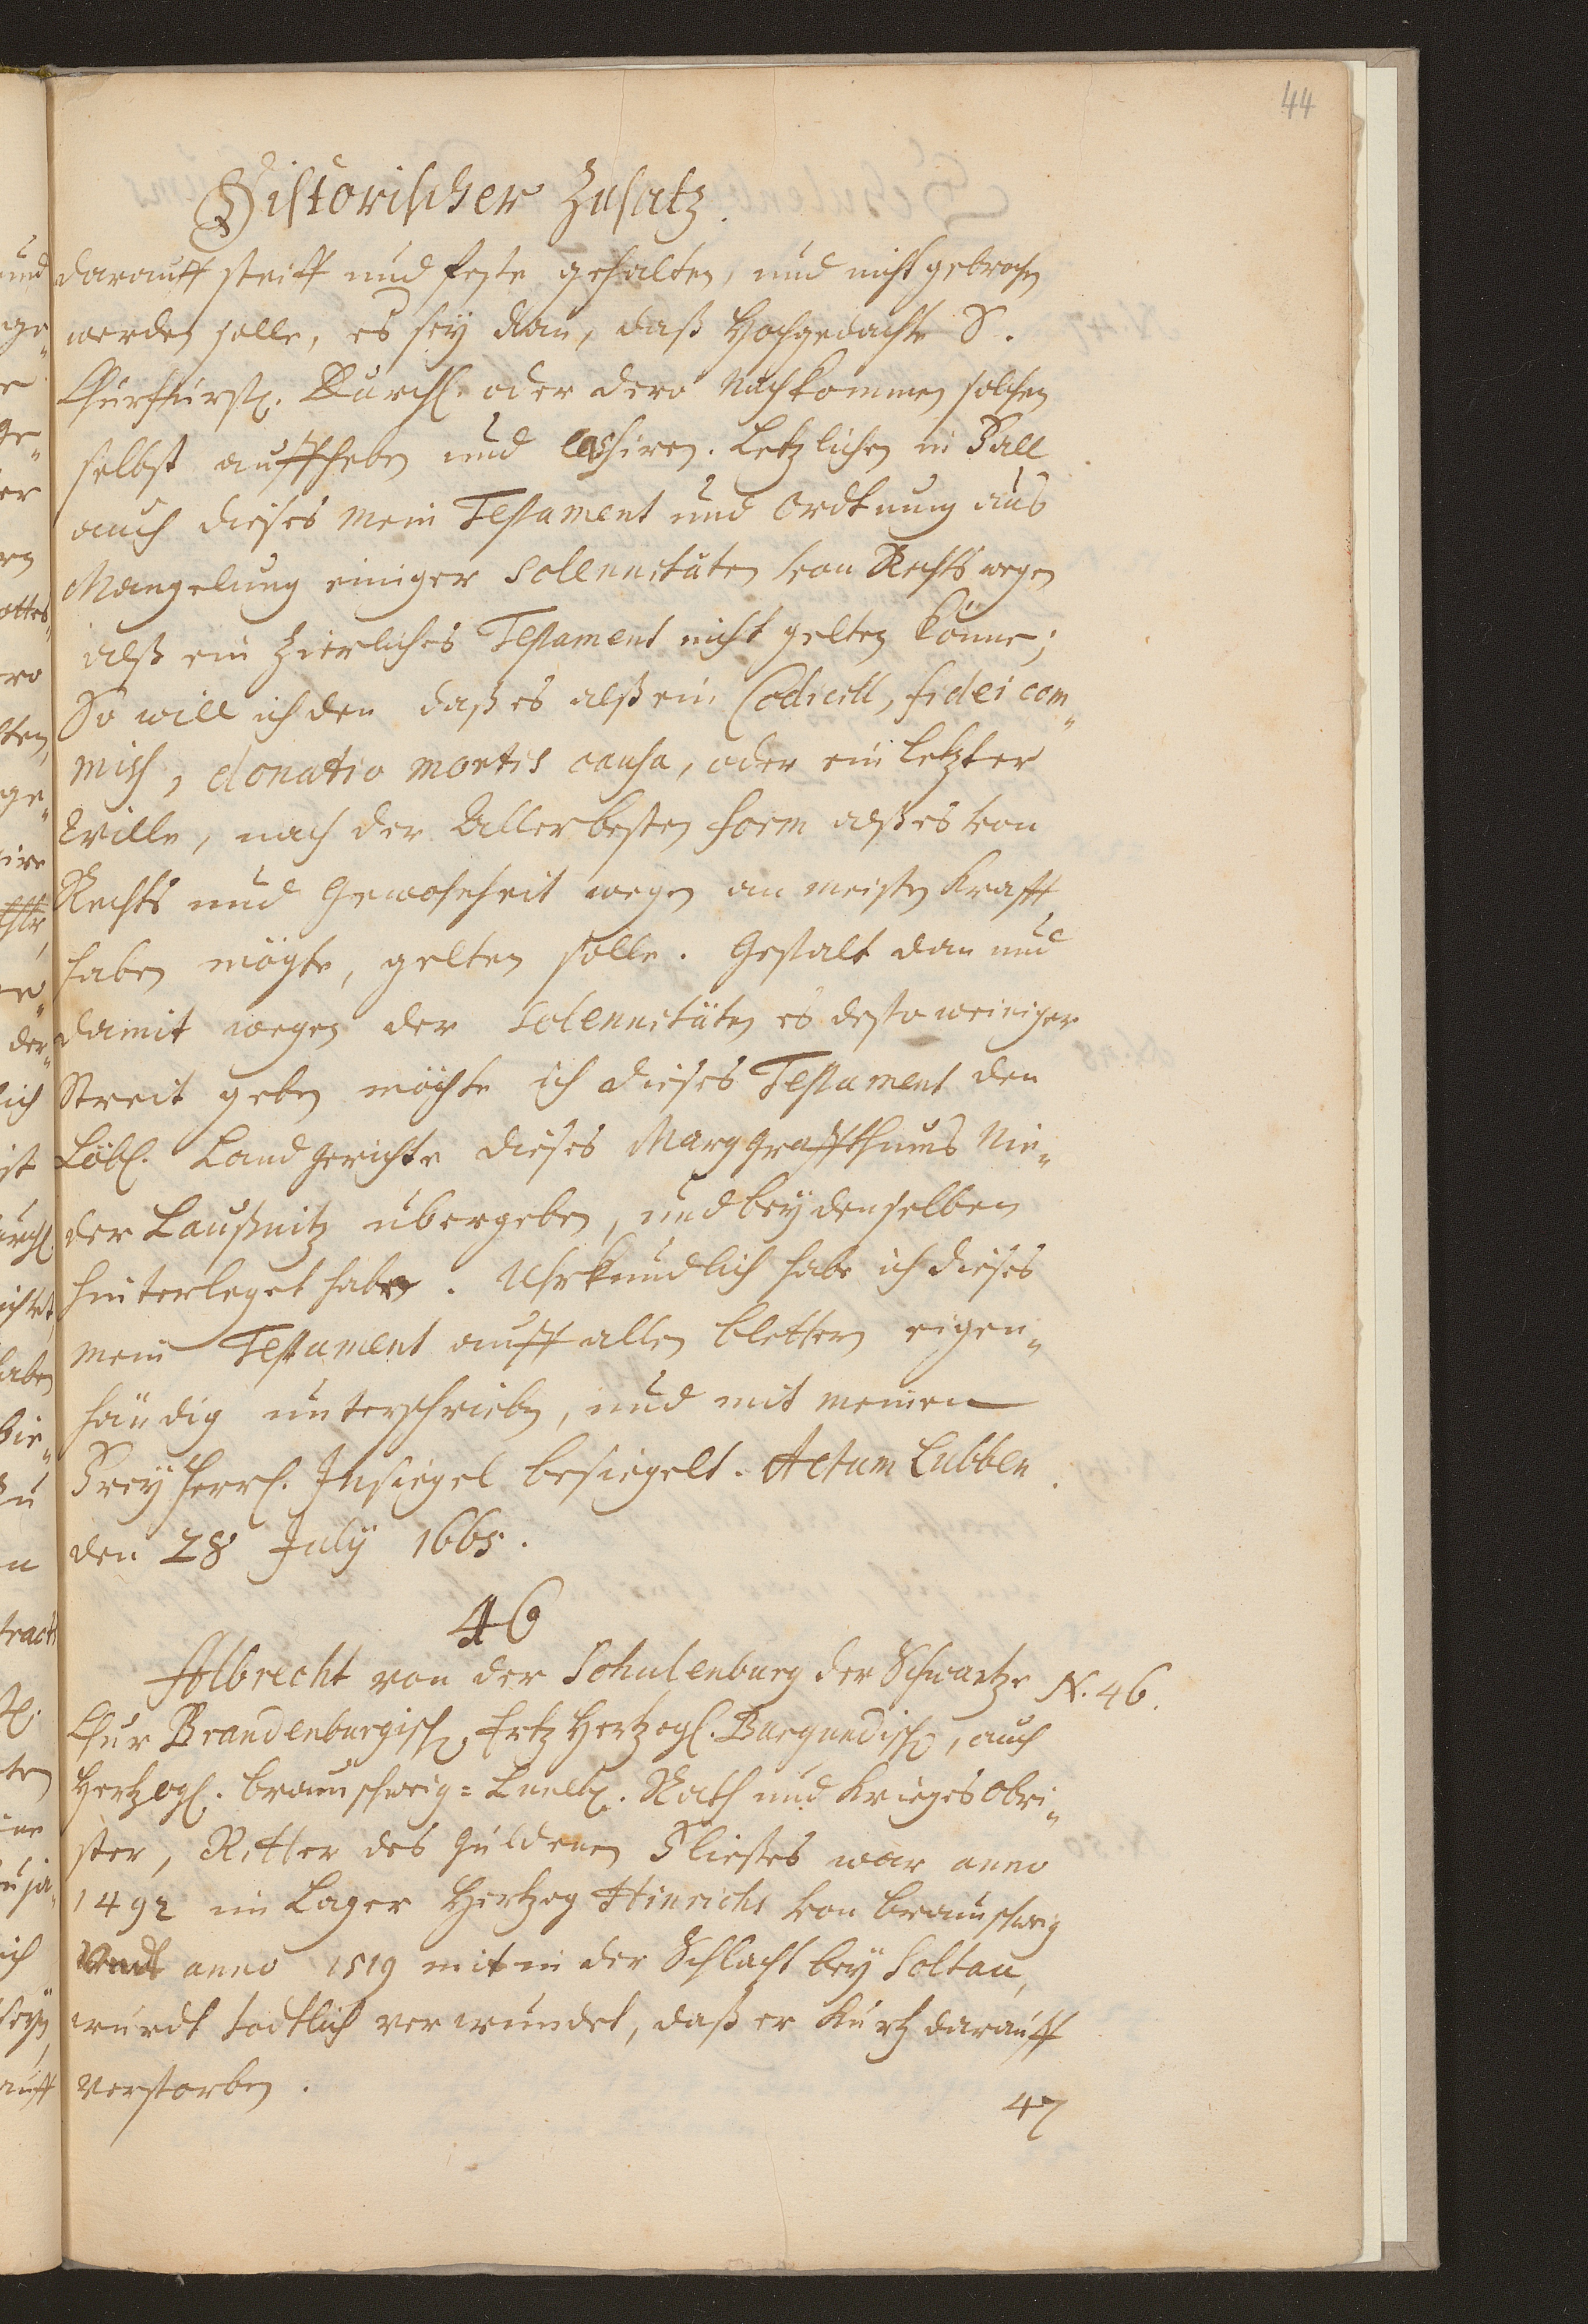 44
Historischer Zusatz.
darauff steiff und feste gehalten, und nicht gebrochen
werden solle, es sey dan, daß Hochgedachte S.
Churfürstl. Durchl. oder dero Nachkommen solchen
selbst auffheben und cassiren. Letzlichen in Fall
auch dieses mein Testament und Ordtnung aus
Mangelung einiger Solennitäten von Rechts wegen
alß ein Zierliches Testament nicht gelten könne;
So will ich den daß es alß ein Codicill, fidei com„
miss, donatio mortis causa, oder ein letzter
Wille, nach der Allerbesten form alß es von
Rechts und Gewohnheit wegen am meisten Krafft
haben mögte, gelten solle. Gestalt dan und
damit wegen der Solennitäten es desto weiniger
Streit geben möchte ich dieses Testament den
Löbl. Landgerichte dieses Marggraffthums Nie„
der Laußnitz übergeben, und bey denselben
hinterleget habe. Uhrkundlich habe ich dieses
mein Testament auff allen blettern eigen„
händig unterschrieben, und mit meinen
Freyherrl. Insiegel besiegelt. Actum Lubben
den 28 July 1665.
46
Albrecht von der Schulenburg der Schwartze
N. 46.
Chur Brandenburgisch, Ertz Hertzogl. Burgundisch, auch
Hertzogl. braunschweig=Luneb. Rath und Krieges Obri„
ster, Ritter des Güldenen Fliesses war anno
1492 im Lager Hertzog Hinrichs von braunschweig
Undt anno 1519 mit in der Schlacht bey Soltau,
wurdt todtlich verwundet, daß er kurtz darauff
verstorben.
47